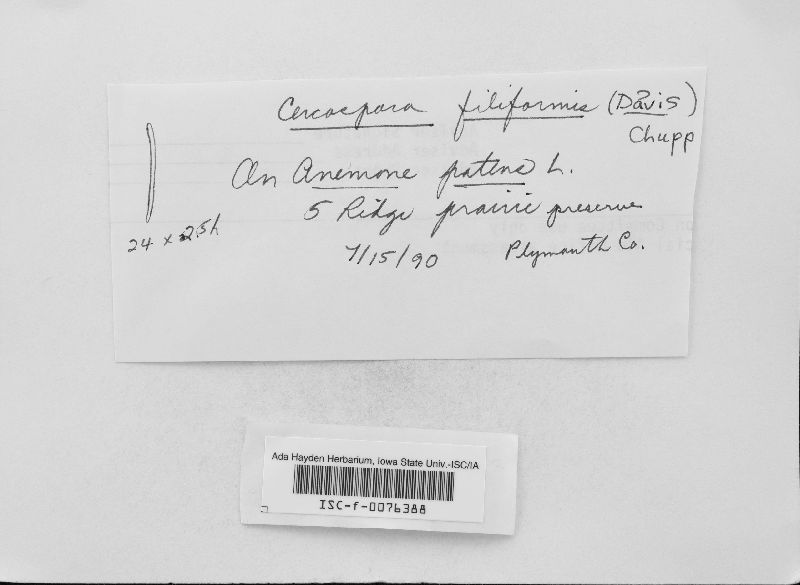 Cercospora filiformis (Davis)
Chupp
On Anemone patens L.
5 Ridge prairie preserve
7/15/90 Plymouth Co.
24 x 2.5
Ada Hayden Herbarium, Iowa State Univ.-ISC/IA
ISC-f-0076388